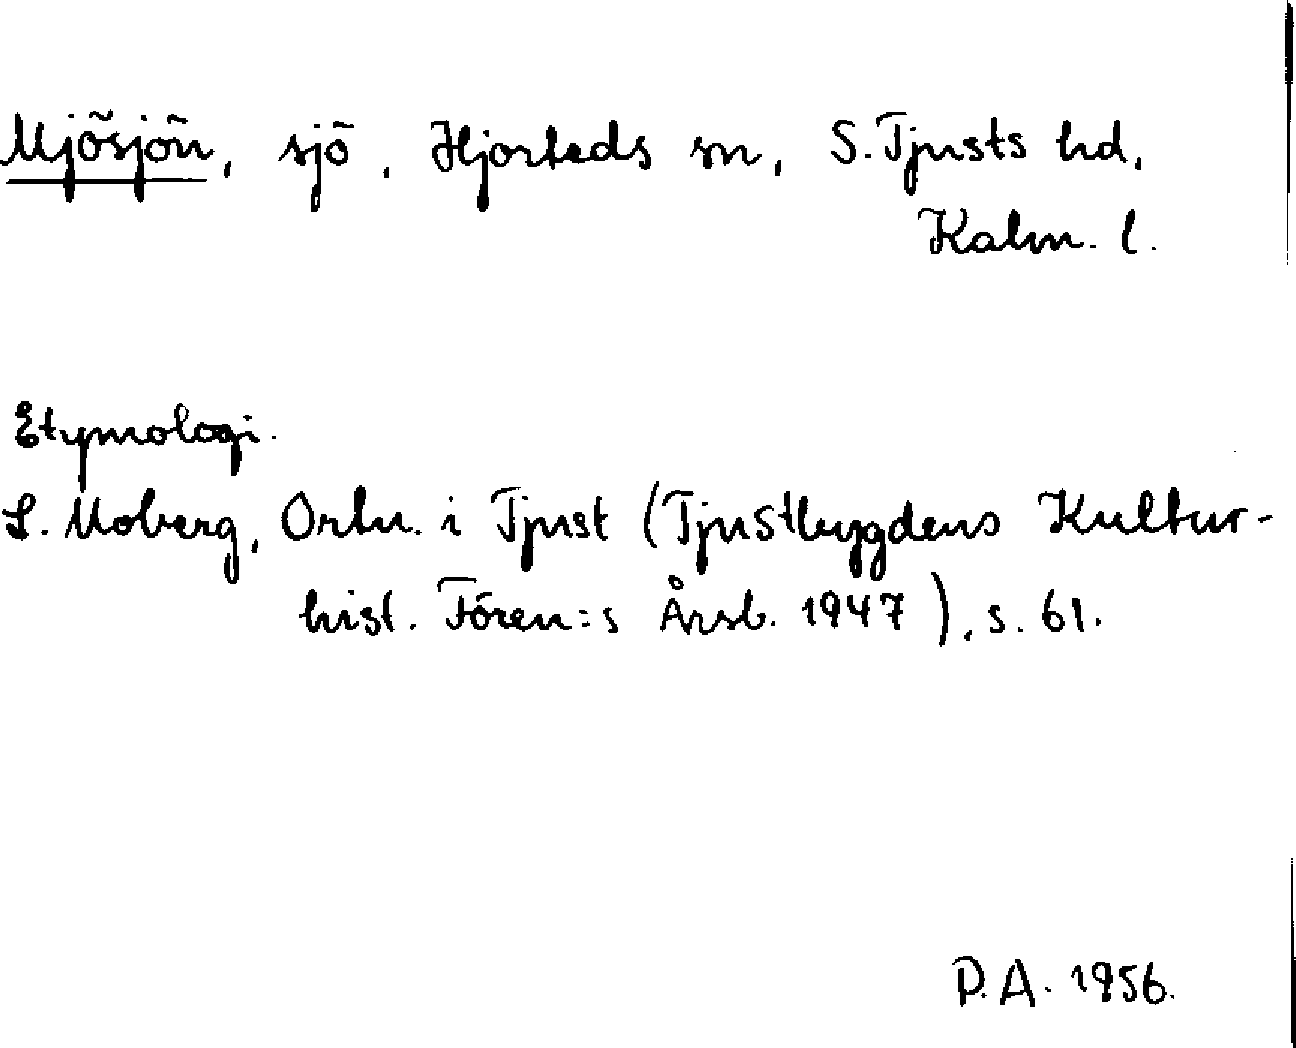 Mjösjön, sjö, Hjorteds sn, S. Tjusts hd,
Kalm. l.
Etymologi.
L. Moberg, Ortn. i Tjust (Tjustbygdens Kultur-
hist. Fören:s Årsb. 1947), s. 61.
P.A. 1956.